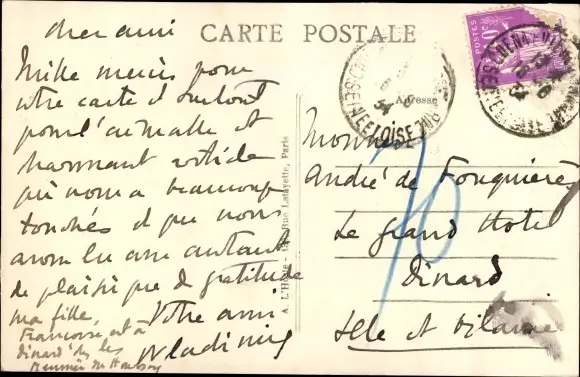 CARTE POSTALE
cher ami
Mille mercis pour
votre carte et surtout
pour l'aimable et
charmant article
qui nous a beaucoup
touchés et que nous
avons lu avec autant
de plaisir que de gratitude
Votre ami
Wladimir
ma fille,
Françoise, est à
Dinard chez les
A. L'Hoste - Rue Lafayette, Paris
Adresse
Monsieur
André de Fouquières
Le Grand Hotel
Dinard
Ille et Vilaine
70
POSTES
SEINE ET OISE